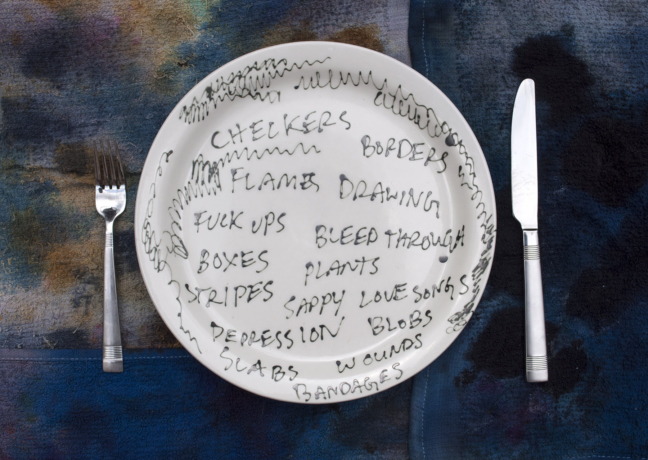 CHECKERS
BORDERS
FLAMES DRAWING
FUCK UPS BLEED THROUGH
BOXES PLANTS
STRIPES SAPPY LOVE SONGS
DEPRESSION BLOBS
SCABS WOUNDS
BANDAGES